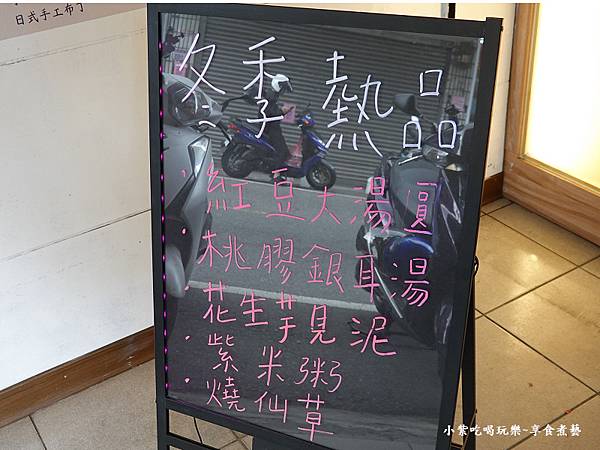 日式手工布丁
冬季熱品
·紅豆大湯圓
·桃膠銀耳湯
·花生芋見泥
·紫米粥
·燒仙草
小紫吃喝玩樂~享食煮藝